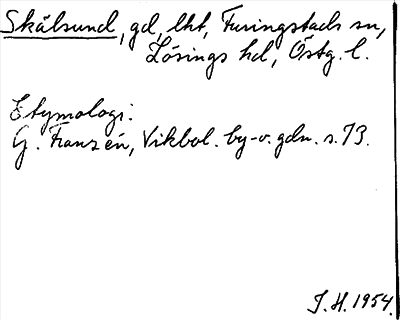 Skälsund, gd, lht, Furingstads sn,
Lösings hd, Östg. l.
Etymologi:
G. Franzén, Vikbol. by-o. gdn. s. 73.
J. H. 1954.